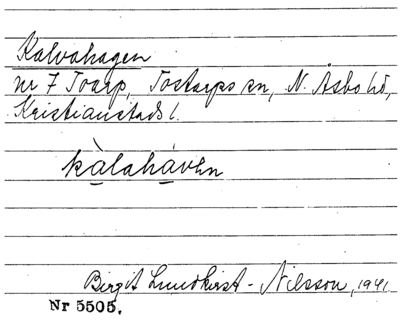 Kalvahagen
nr 7 Toarp, Tostarps sn, N. Åsbo hd,
Kristianstads l.
kàlahávɘn
Birgit Lundkvist - Nilsson, 1941.
Nr 5505.